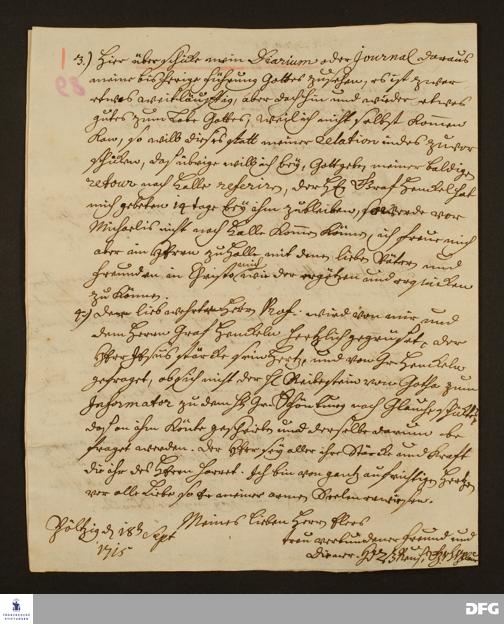 3.) Hier überschicke mein Diarium oder Journal daraus
meine bisherige Führung Gottes zusehen, es ist zwar
etwas weitläufftig, aber doch hin und wieder etwas
gutes zum Lobe Gottes, weil ich nicht selbst kommen
kan, so will dieses statt meiner relation indes zuvor
schicken, das übrige will ich bey, Gott gebe, meiner baldigen
retour nach Halle referiren, der H. Graf Henckel hat
mich gebeten 14 tage bey ihm zu bleiben, werde vor
Michaelis nicht nach Halle kommen können, ich freue mich
aber im Herrn zu Halle mit denen lieben Vätern und
Freunden in Christo mich wieder ergötzen und erquicken
zu können.
4.) Der lieb wehrte Herr Prof. wird von mir und
dem Herrn Graf Henckeln hertzlich gegrüsset, der
Herr Jesus stärcke sein Hertz, und von Gr. Henckeln
gefraget, ob sich nicht der H. von Gotha zum
Informator zu dem H. Gr. Schönburg nach Glauche schicke
daß an ihn könte geschrieben und derselbe darum be
fraget werden. Der Herr sey aller ihr Stärcke und Krafft
die ihr des Herrn harret. Ich bin von gantz aufrichtigem Hertzen
vor alle Liebe so Er meiner armen Seelen erwiesen.
Meines lieben Herrn Elers
Pöltzig d. 18 Sept
1715
treu verbundener Freund und
Diener
89
FRANCKESCHE STIFTUNGEN
DFG